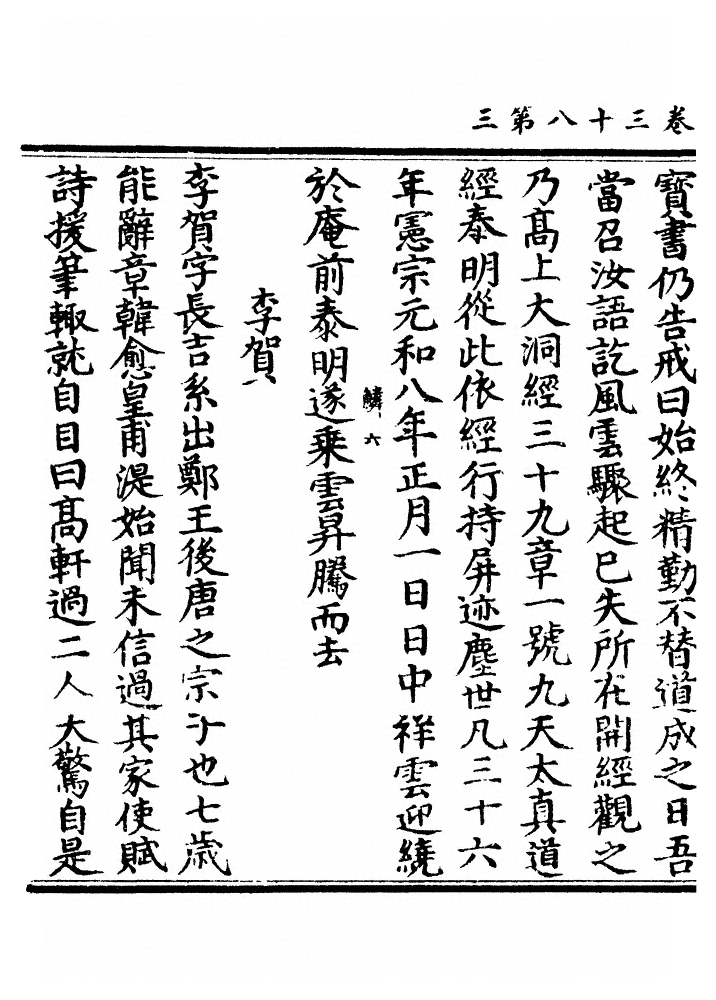 卷三十八第三
寳書仍告戒曰始終精勤不替道成之日吾
當召汝語訖風雲驟起已失所在開經觀之
乃髙上大洞經三十九章一號九天太真道
經泰明從此依經行持屏迹塵世凡三十六
年憲宗元和八年正月一日日中祥雲迎繞
鱗六
於庵前泰明遂乗雲昇騰而去
李賀
李賀字長吉系出鄭王後唐之宗子也七歲
能辭章韓愈皇甫湜始聞未信過其家使賦
詩援筆輙就自目曰髙軒過二人大驚自是